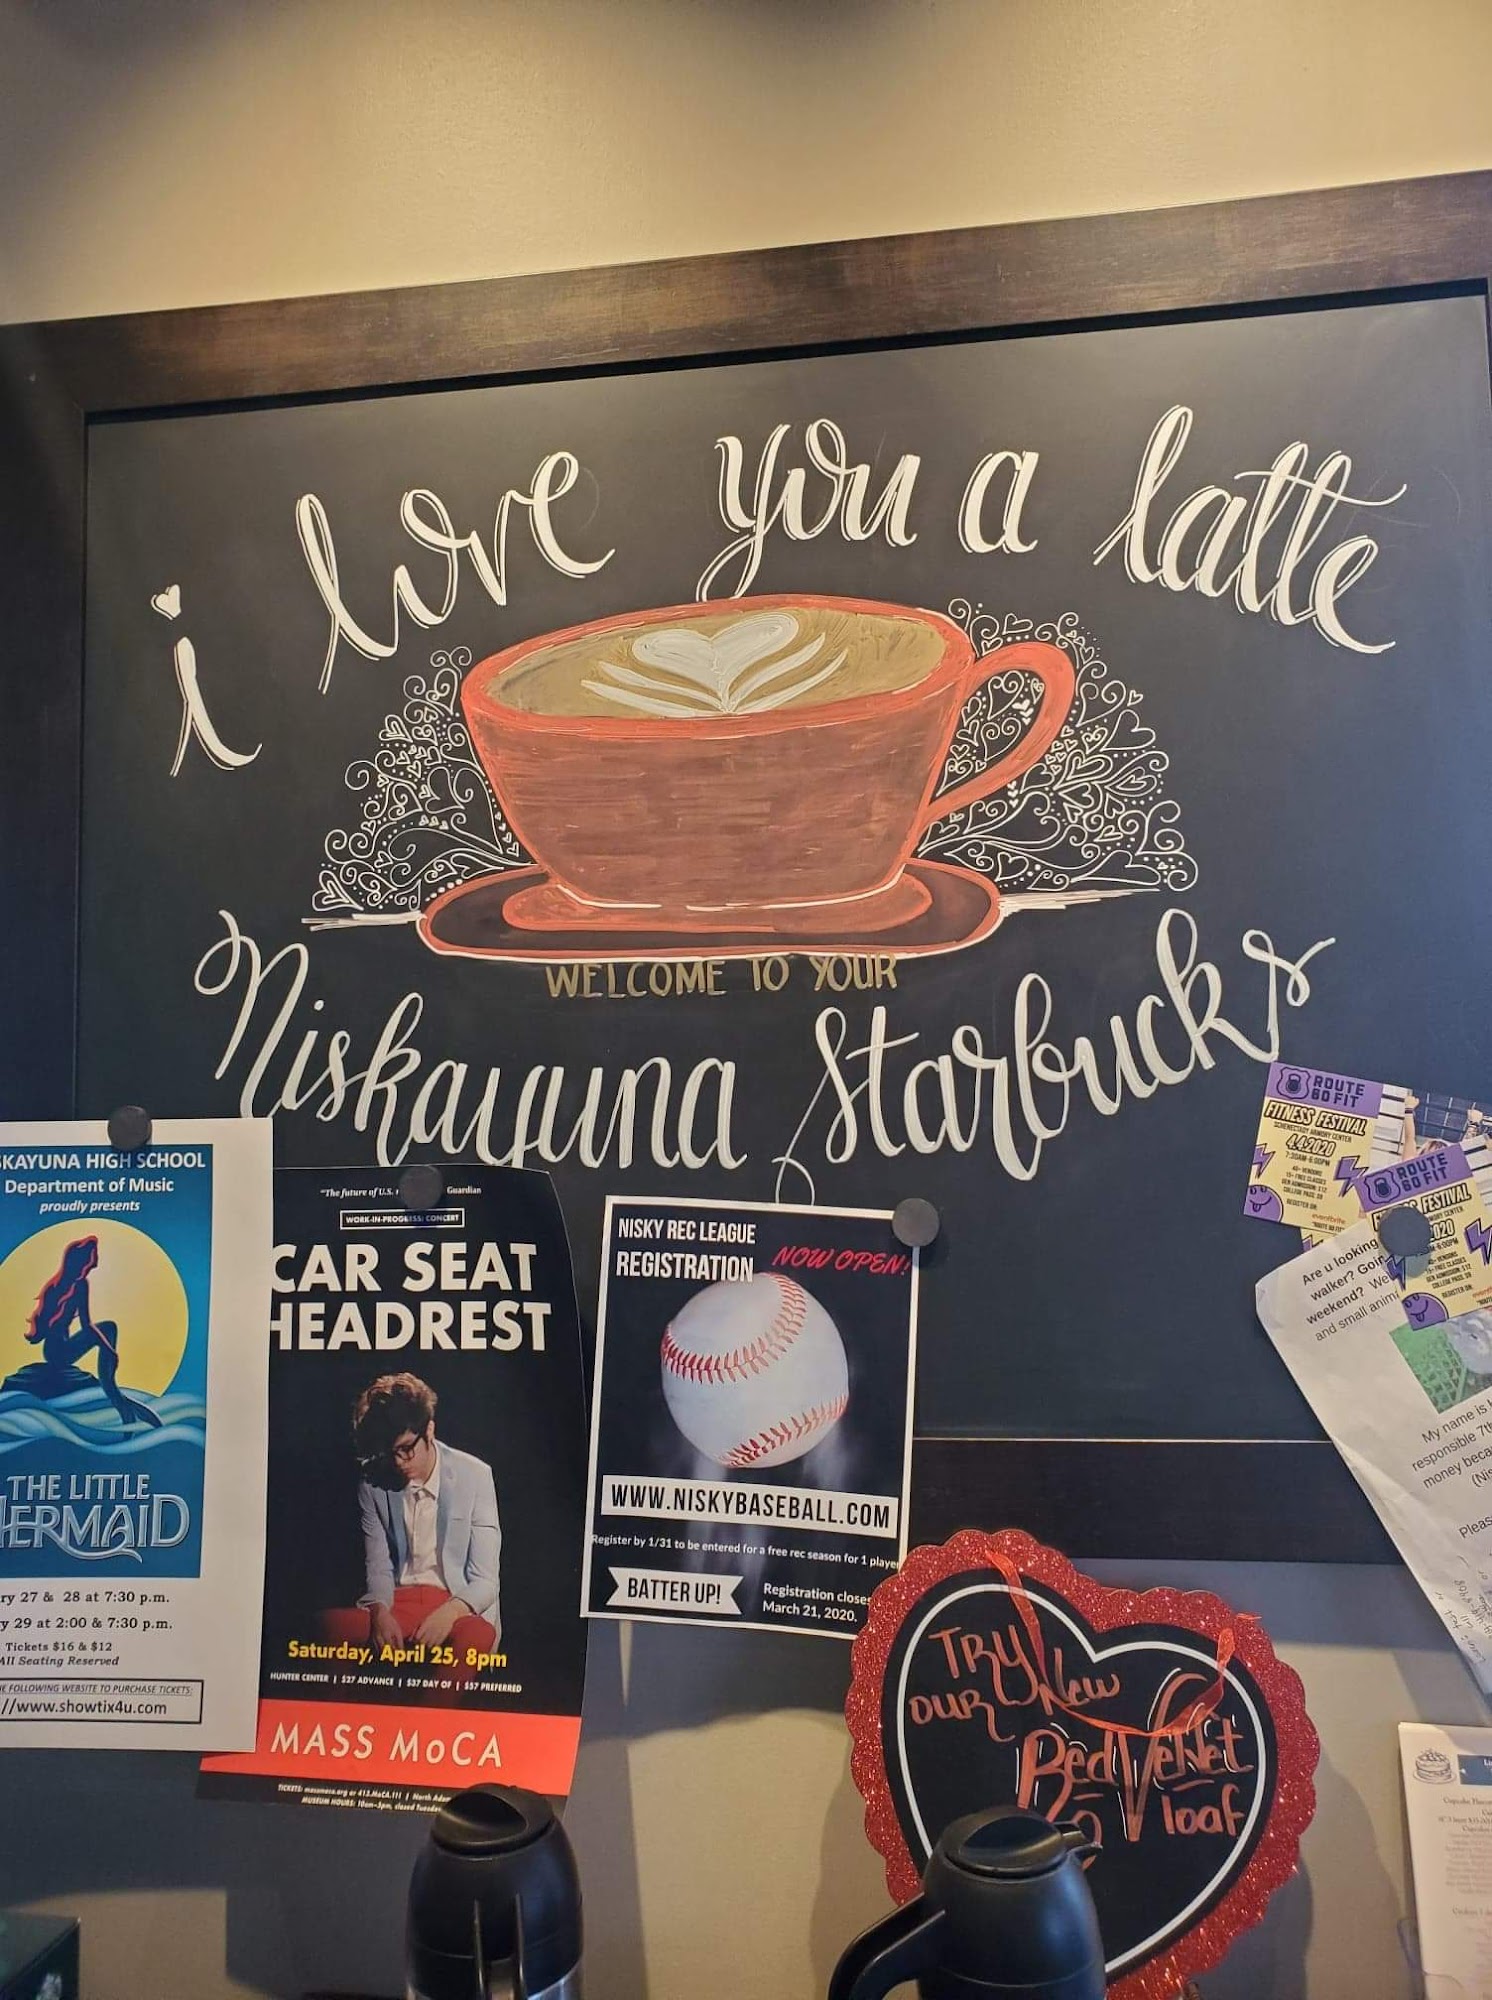 i love you a latte
WELCOME TO YOUR
Niskayuna Starbucks
SKAYUNA HIGH SCHOOL
Department of Music
proudly presents
THE LITTLE
MERMAID
ry 27 & 28 at 7:30 p.m.
y 29 at 2:00 & 7:30 p.m.
Tickets $16 & $12
All Seating Reserved
E FOLLOWING WEBSITE TO PURCHASE TICKETS:
//www.showtix4u.com
"The future of U.S. Guardian
WORK-IN-PROGRESS: CONCERT
CAR SEAT
HEADREST
Saturday, April 25, 8pm
HUNTER CENTER | $27 ADVANCE | $37 DAY OF | $57 PREFERRED
MASS MoCA
TICKETS: massmoca.org or 413.MoCA.111 | North Adam
MUSEUM HOURS: 10am–5pm, closed Tuesday
NISKY REC LEAGUE
REGISTRATION NOW OPEN!
WWW.NISKYBASEBALL.COM
Register by 1/31 to be entered for a free rec season for 1 player
BATTER UP!
Registration closes
March 21, 2020.
TRY
OUR New
Red Velvet
loaf
ROUTE
60 FIT
FITNESS FESTIVAL
SCHENECTADY ARMORY CENTER
4.4.2020
7:30AM-6:00PM
40+ VENDORS
15+ FREE CLASSES
GEN ADMISSION: $12
COLLEGE PASS: $8
REGISTER ON
eventbrite
ROUTE
60 FIT
FESTIVAL
ARMORY CENTER
2020
-6:00PM
FREE CLASSES
GEN ADMISSION: $12
COLLEGE PASS: $8
REGISTER ON
Are u looking
walker? Goin
weekend? We
and small anima
My name is
responsible 7th
money beca
(Nis
Pleas